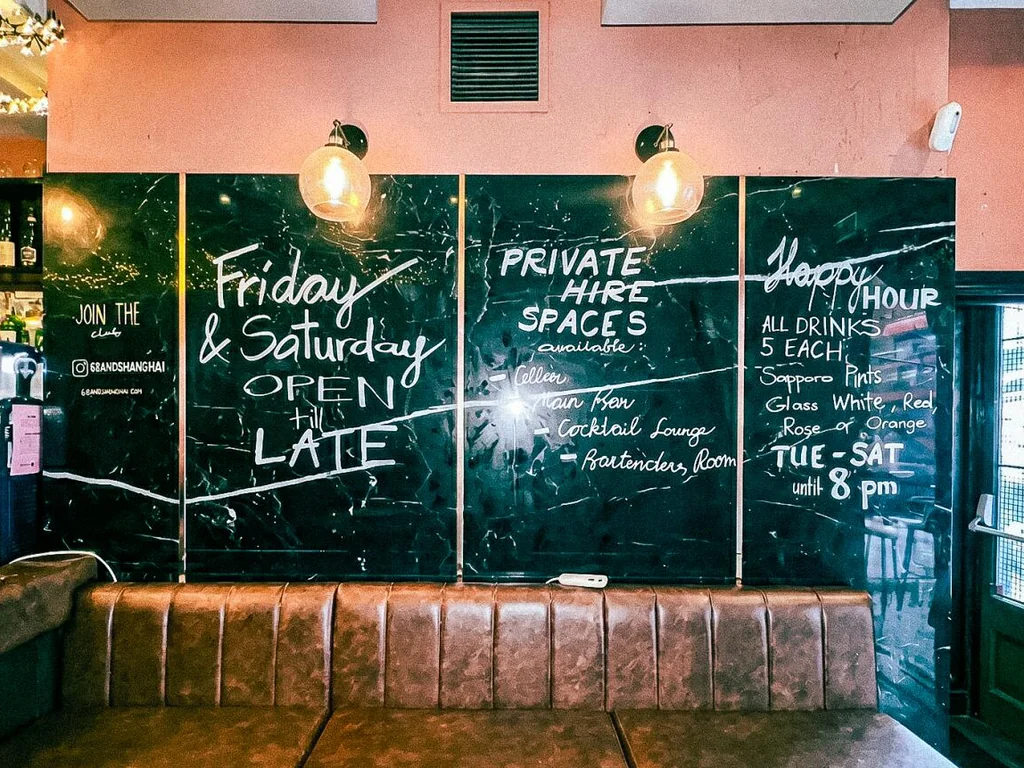 JOIN THE
club
68ANDSHANGHAI
68ANDSHANGHAI.COM
Friday
& Saturday
OPEN
till
LATE
PRIVATE
HIRE
SPACES
available:
- Cellar
- Main Bar
- Cocktail Lounge
- Bartenders Room
Happy
HOUR
ALL DRINKS
5 EACH
Sapporo Pints
Glass White, Red,
Rose or Orange
TUE-SAT
until 8 pm